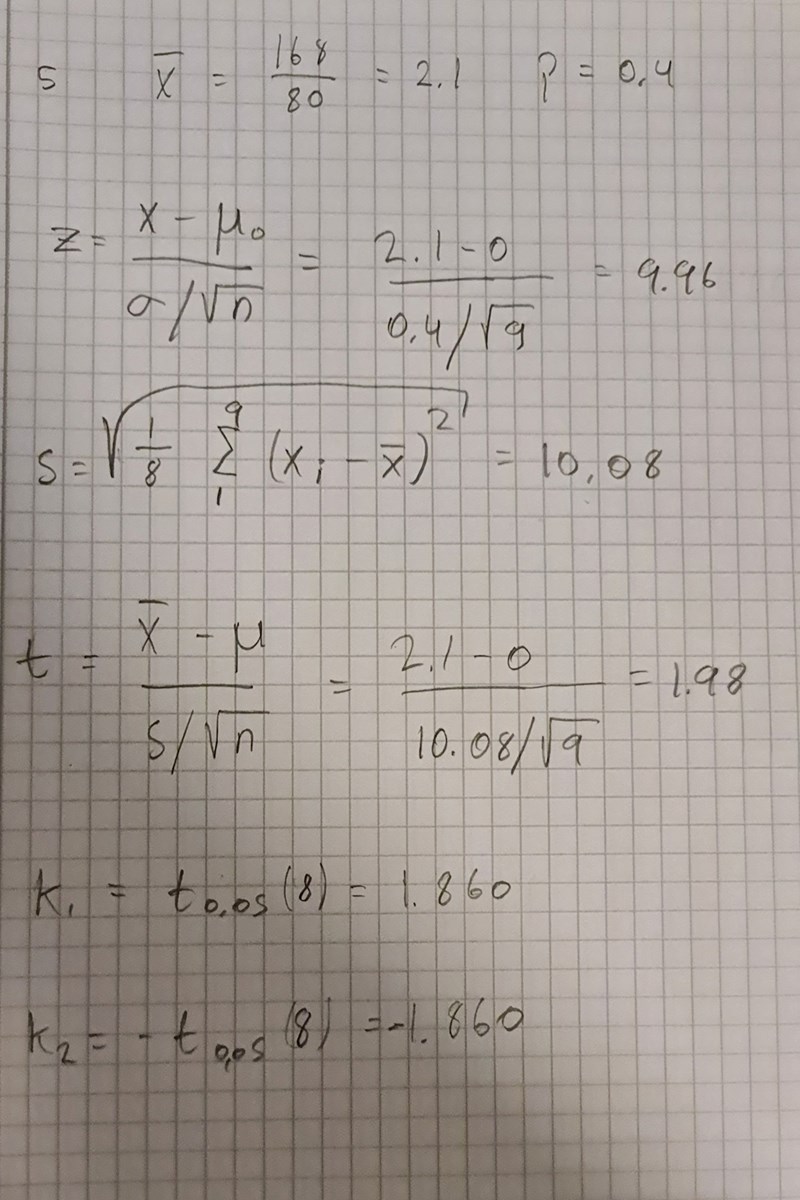 5 x̄ = 168/80 = 2.1 P = 0.4
z = (x - μ₀)/(σ/√n) = (2.1 - 0)/(0.4/√9) = 9.96
S = √(1/8 Σ₁⁹ (xᵢ - x̄)²) = 10.08
t = (x̄ - μ)/(S/√n) = (2.1 - 0)/(10.08/√9) = 1.98
k₁ = t₀.₀₅(8) = 1.860
k₂ = -t₀,₀₅(8) = -1.860